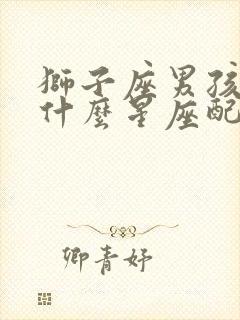 獅子座男孩
什麼星座配
卿青妤